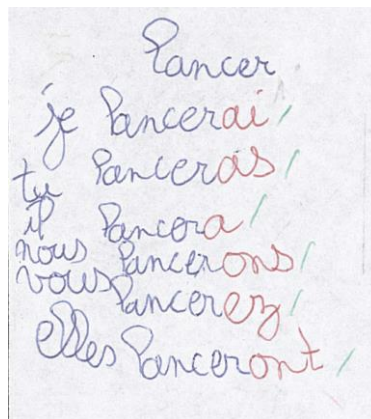 lancer
je lancerai /
tu lanceras /
il lancera /
nous lancerons /
vous lancerez /
elles lanceront /